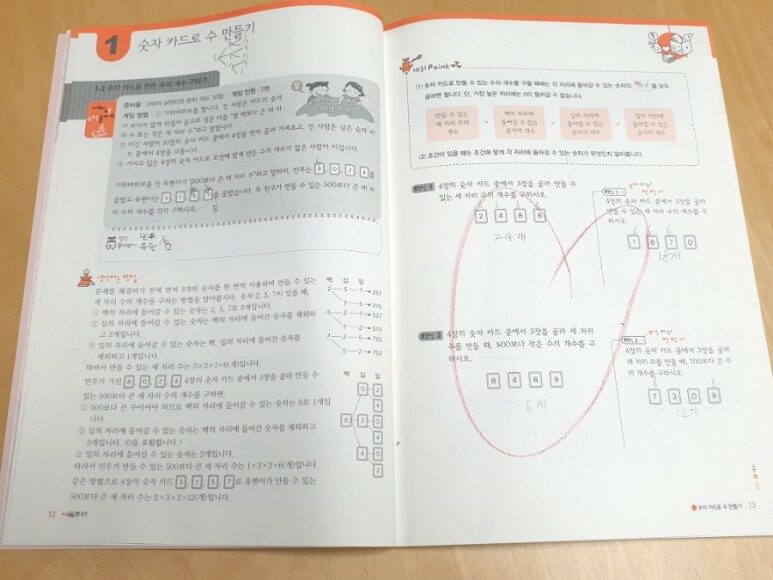 1 숫자 카드로 수 만들기
1-2 숫자 카드로 만든 수의 개수 구하기
준비물 : 0부터 9까지의 숫자 카드 10장 게임 인원 : 2명
게임 방법 : ① 가위바위보를 합니다. 진 사람은 카드의 숫자
② 이긴 사람이 10장의 숫자 카드 중에서 4장을 먼저 골라 가져오고, 진 사람은 남은 숫자 카
드 중에서 4장을 고릅니다.
③ 가지고 있는 4장의 숫자 카드로 조건에 맞게 만든 수의 개수가 많은 사람이 이깁니다.
가위바위보를 진 유현이가 "500보다 큰 세 자리 수"라고 말하자, 민우는 8 0 2 4 를
골랐고 유현이는 3 1 5 7 을 골랐습니다. 두 친구가 만들 수 있는 500보다 큰 세 자
리 수의 개수를 각각 구하시오.
생각하는 방법
문제를 해결하기 전에 먼저 3개의 숫자를 한 번씩 사용하여 만들 수 있는
세 자리 수의 개수를 구하는 방법을 알아봅시다. 숫자 2, 5, 7이 있을 때,
① 백의 자리에 들어갈 수 있는 숫자는 2, 5, 7로 3개입니다.
② 십의 자리에 들어갈 수 있는 숫자는 백의 자리에 들어간 숫자를 제외하
고 2개입니다.
③ 일의 자리에 들어갈 수 있는 숫자는 백, 십의 자리에 들어간 숫자를
제외하고 1개입니다.
따라서 만들 수 있는 세 자리 수는 3×2×1=6(개)입니다.
백 십 일
2 5 7 → 257
7 5 → 275
5 2 7 → 527
7 2 → 572
7 2 5 → 725
5 2 → 752
민우가 가진 8 0 2 4 4장의 숫자 카드 중에서 3장을 골라 만들 수
있는 500보다 큰 세 자리 수의 개수를 구하면,
① 500보다 큰 수이어야 하므로 백의 자리에 들어갈 수 있는 숫자는 8로 1개입
니다.
② 십의 자리에 들어갈 수 있는 숫자는 백의 자리에 들어간 숫자를 제외하고
3개입니다. (0을 포함합니다.)
③ 일의 자리에 들어갈 수 있는 숫자는 2개입니다.
따라서 민우가 만들 수 있는 500보다 큰 세 자리 수는 1×3×2=6(개)입니다.
같은 방법으로 4장의 숫자 카드 3 1 5 7 로 유현이가 만들 수 있는
500보다 큰 세 자리 수는 2×3×2=12(개)입니다.
백 십 일
8
12
1031 Point
(1) 숫자 카드로 만들 수 있는 수의 개수를 구할 때에는 각 자리에 들어갈 수 있는 숫자의 개수를 모두
곱하면 됩니다. 단, 가장 높은 자리에는 0이 들어갈 수 없습니다.
만들 수 있는 세 자리 수의 개수 = 백의 자리에 들어갈 수 있는 숫자의 개수 × 십의 자리에 들어갈 수 있는 숫자의 개수 × 일의 자리에 들어갈 수 있는 숫자의 개수
(2) 조건이 있을 때는 조건에 맞게 각 자리에 들어갈 수 있는 숫자가 무엇인지 알아봅니다.
확인 1 4장의 숫자 카드 중에서 3장을 골라 만들 수
있는 세 자리 수의 개수를 구하시오.
2 4 8 6
24개
4장의 숫자 카드 중에서 3장을 골라
만들 수 있는 세 자리 수의 개수를 구
하시오.
1 8 7 0
18개
확인 2 4장의 숫자 카드 중에서 3장을 골라 세 자리
수를 만들 때, 500보다 작은 수의 개수를 구
하시오.
8 4 6 9
6개
4장의 숫자 카드 중에서 3장을 골라
세 자리 수를 만들 때, 700보다 큰 수
의 개수를 구하시오.
7 3 0 9
12개
① 숫자 카드로 수 만들기 13